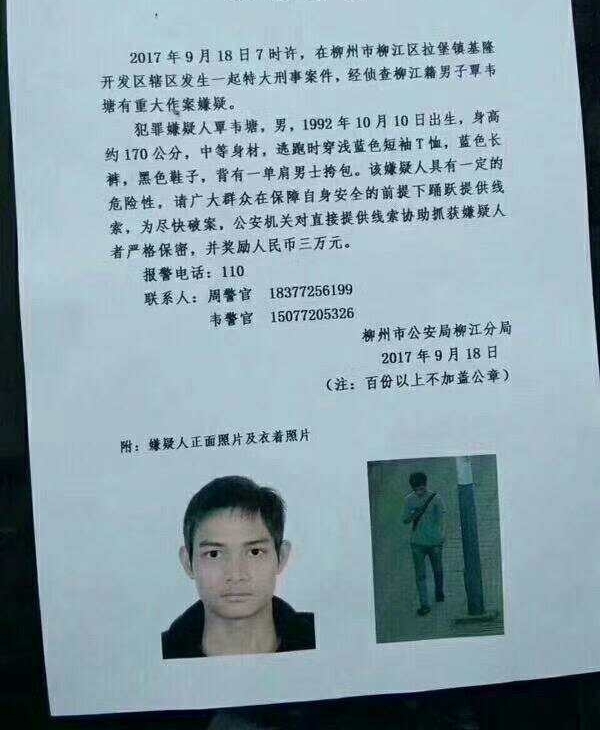 2017 年 9 月 18 日 7 时许，在柳州市柳江区拉堡镇基隆
开发区辖区发生一起特大刑事案件，经侦查柳江籍男子覃韦
塘有重大作案嫌疑。
犯罪嫌疑人覃韦塘，男，1992 年 10 月 10 日出生，身高
约 170 公分，中等身材，逃跑时穿浅蓝色短袖 T 恤，蓝色长
裤，黑色鞋子，背有一单肩男士挎包。该嫌疑人具有一定的
危险性，请广大群众在保障自身安全的前提下踊跃提供线
索，为尽快破案，公安机关对直接提供线索协助抓获嫌疑人
者严格保密，并奖励人民币三万元。
报警电话：110
联系人：周警官 18377256199
韦警官 15077205326
柳州市公安局柳江分局
2017 年 9 月 18 日
（注：百份以上不加盖公章）
附：嫌疑人正面照片及衣着照片